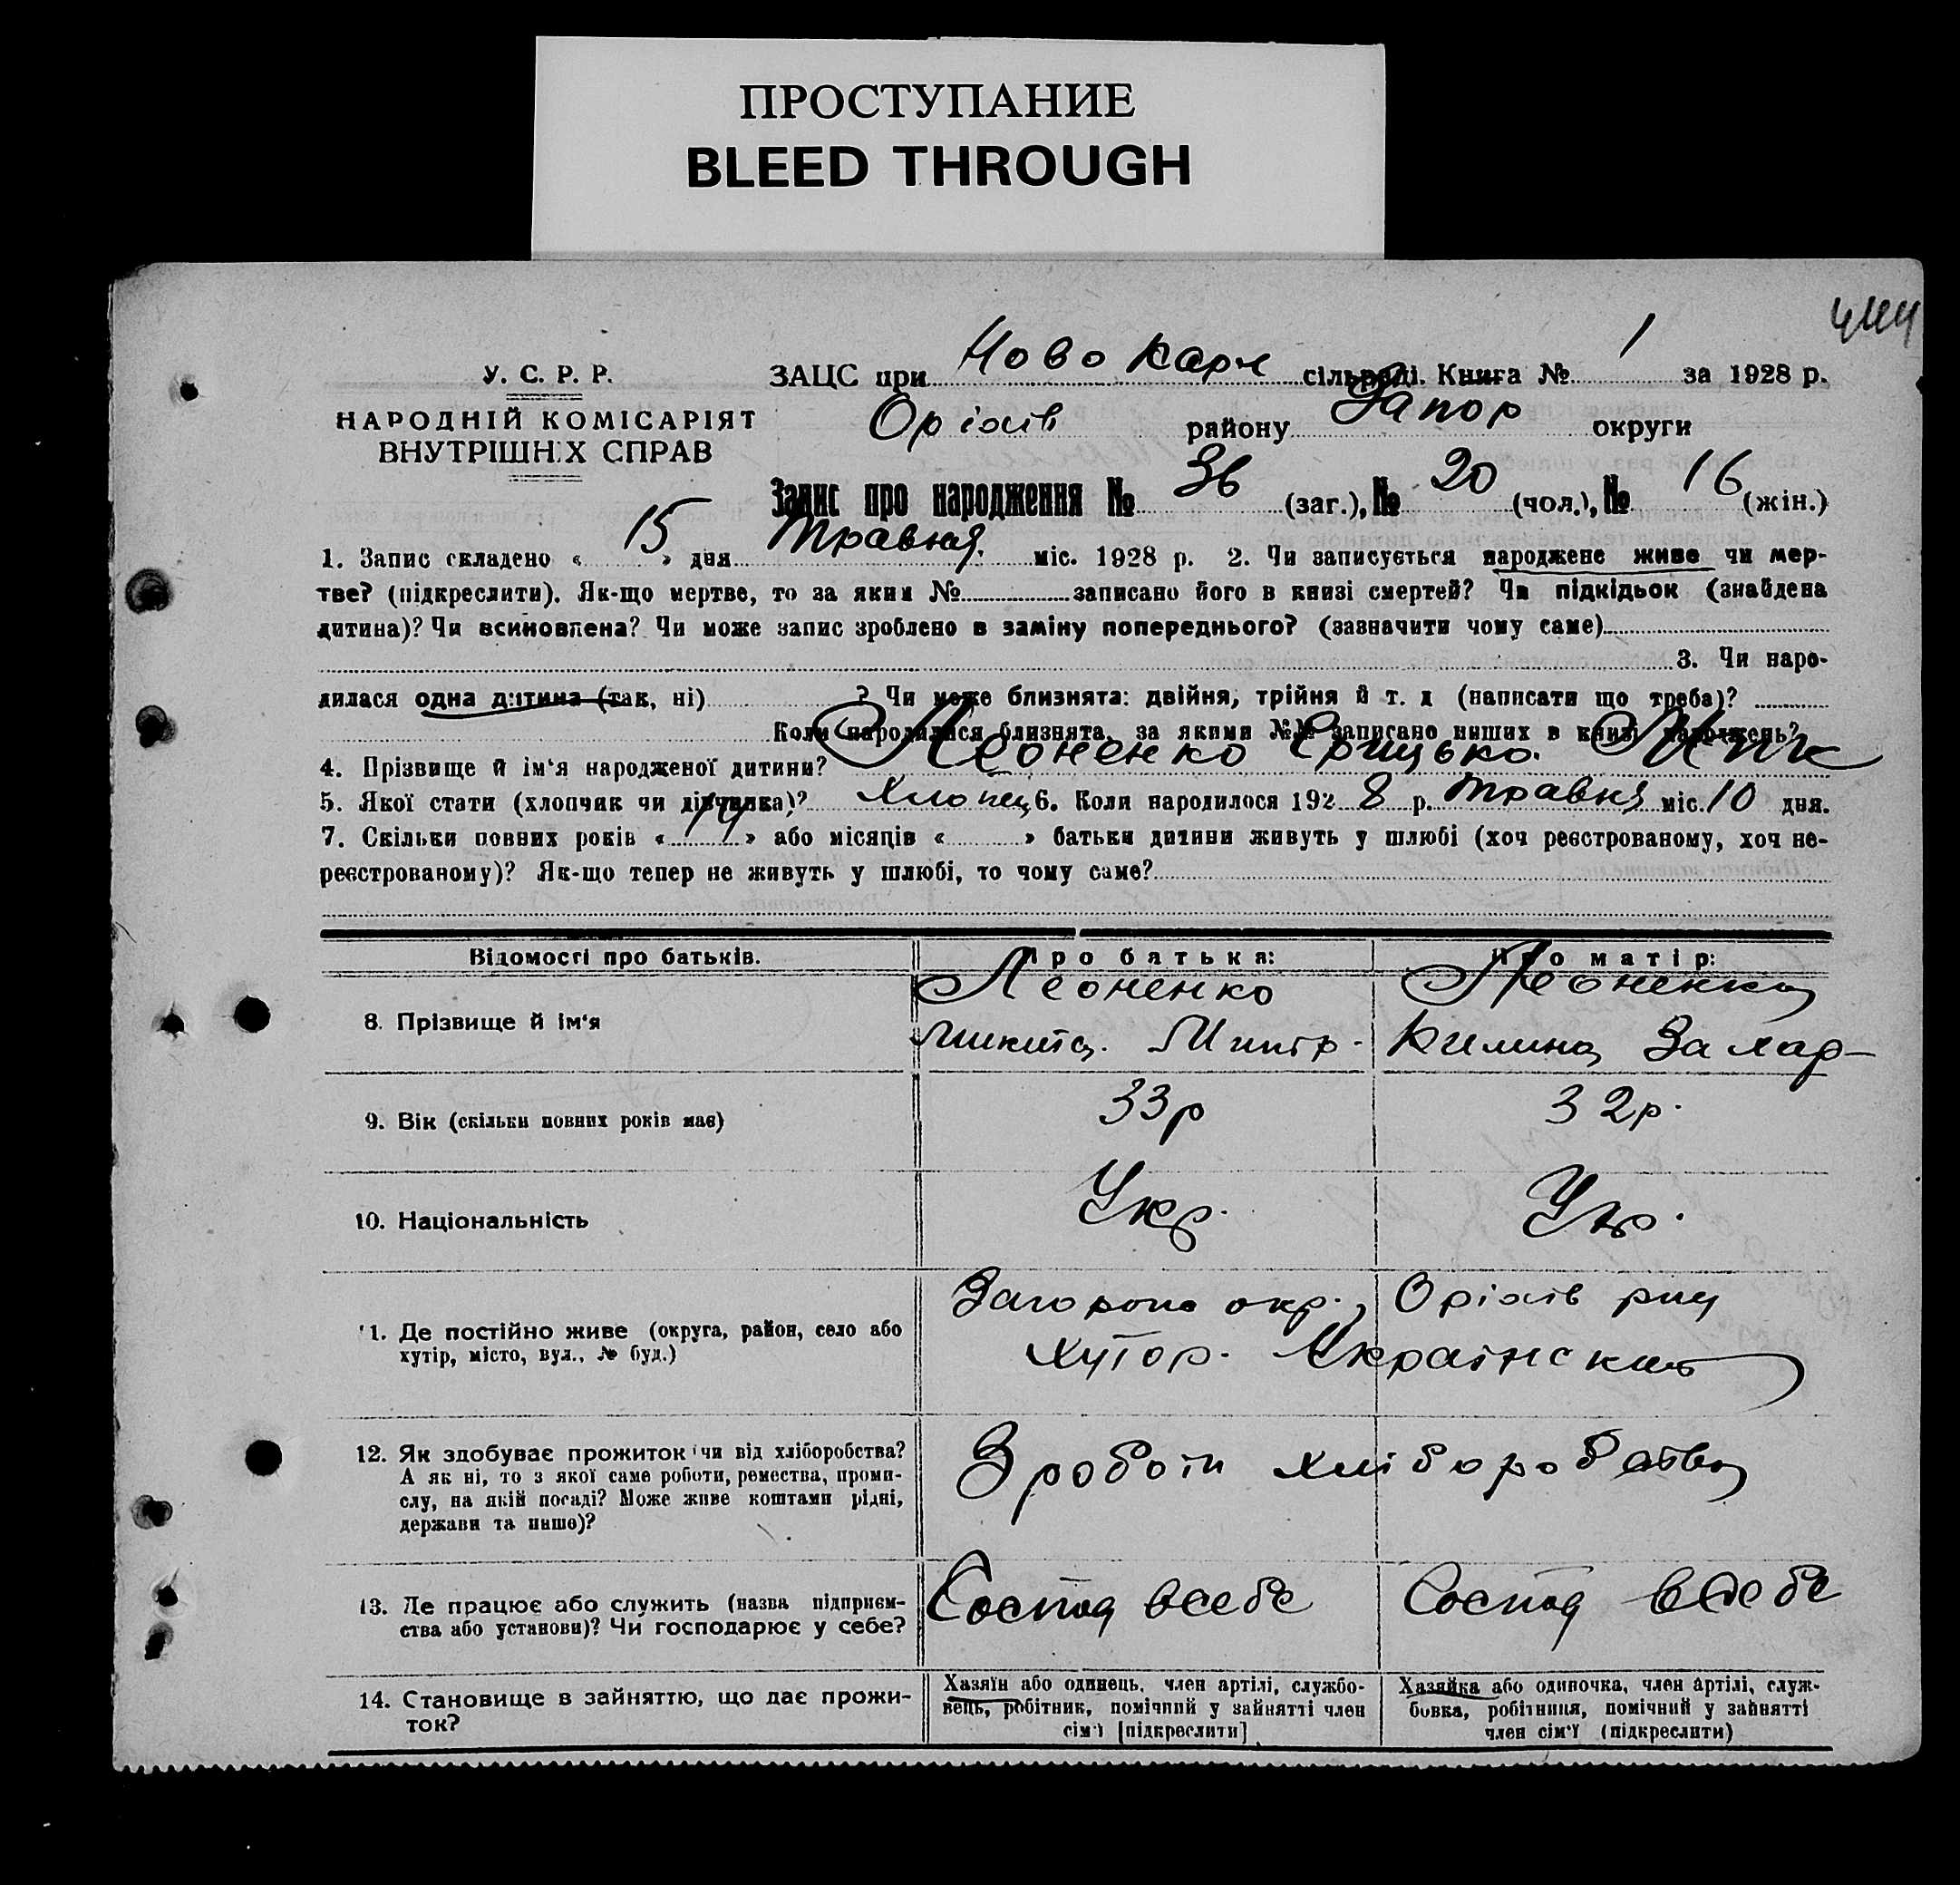 ПРОСТУПАНИЕ
BLEED THROUGH
У. С. Р. Р.
НАРОДНІЙ КОМІСАРІЯТ
ВНУТРІШНІХ СПРАВ
ЗАЦС при Ново Карл сільраді. Книга № 1 за 1928 р.
Оріхів району Запор округи
Запис про народження № 36 (заг.), № 20 (чол.), № 16 (жін.)
1. Запис складено « 15 » дня Травня міс. 1928 р. 2. Чи записується народжене живе чи мер-
тве? (підкреслити). Як-що мертве, то за яким № записано його в книзі смертей? Чи підкідьок (знайдена
дитина)? Чи всиновлена? Чи може запис зроблено в заміну попереднього? (зазначити чому саме)
3. Чи наро-
дилася одна дитина (так, ні) ? Чи може близнята: двійня, трійня й т. д (написати що треба)?
Коли народилися близнята, за якими №№ записано инших в книзі народжень?
4. Прізвище й ім'я народженої дитини? Леоненко Грицько Мик
5. Якої стати (хлопчик чи дівчинка)? Хлопец 6. Коли народилося 1928 р. Травня міс. 10 дня.
7. Скільки повних років « 14 » або місяців « » батьки дитини живуть у шлюбі (хоч реєстрованому, хоч не-
реєстрованому)? Як-що тепер не живуть у шлюбі, то чому саме?
Відомості про батьків. Про батька: Про матір:
8. Прізвище й ім'я Леоненко Микита Митр. Леоненко Килина Захар
9. Вік (скільки повних років має) 33р 32р.
10. Національність Укр. Укр.
11. Де постійно живе (округа, район, село або
хутір, місто, вул., № буд.)
окр., Оріхів
Хутор. Українский
12. Як здобуває прожиток чи від хліборобства?
А як ні, то з якої саме роботи, ремества, проми-
слу, на якій посаді? Може живе коштами рідні,
держави та инше)?
З роботи хліборобства
13. Де працює або служить (назва підприєм-
ства або установи)? Чи господарює у себе?
Господ всебе Господ всебе
14. Становище в зайняттю, що дає прожи-
ток?
Хазяїн або одинець, член артілі, службо-
вець, робітник, помічний у зайнятті член
сім'ї [підкреслити]
Хазяйка або одиночка, член артілі, служ-
бовка, робітниця, помічний у зайнятті
член сім'ї (підкреслити)